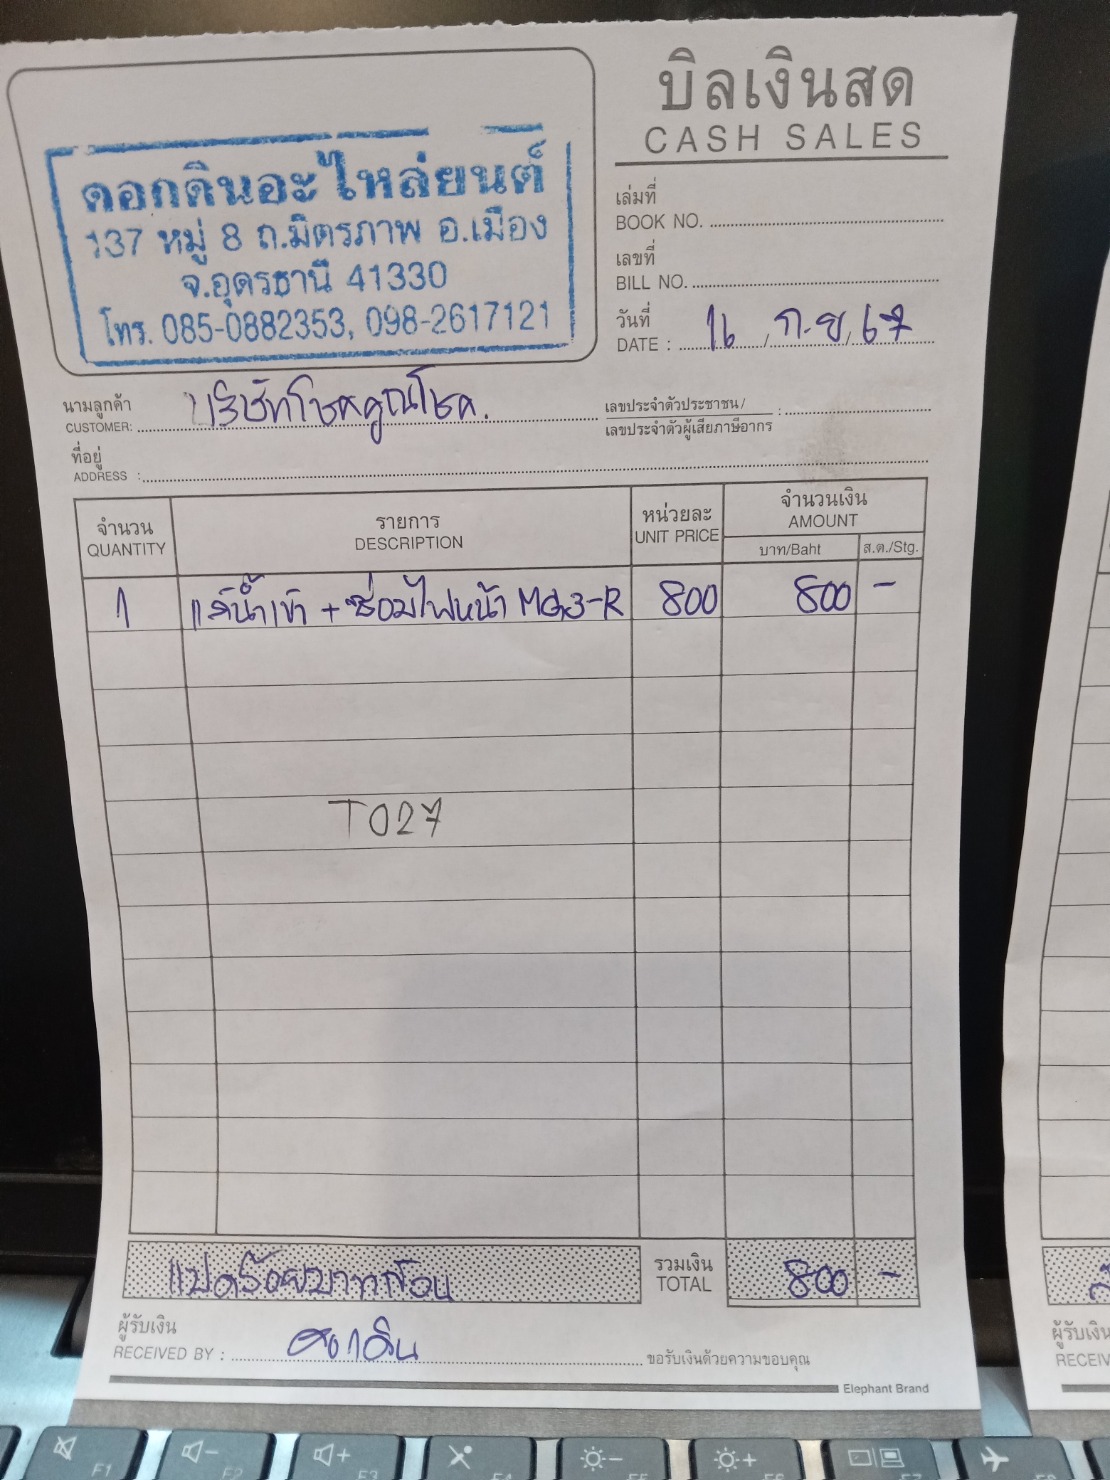 บิลเงินสด
CASH SALES
ดอกดินอะไหล่ยนต์
137 หมู่ 8 ถ.มิตรภาพ อ.เมือง
จ.อุดรธานี 41330
โทร. 085-0882353, 098-2617121
เล่มที่
BOOK NO.
เลขที่
BILL NO.
วันที่
DATE : 16 / ก.ย / 67
นามลูกค้า
CUSTOMER: บริษัทโชคคูณโชค.
เลขประจำตัวประชาชน/
เลขประจำตัวผู้เสียภาษีอากร :
ที่อยู่
ADDRESS :
จำนวน รายการ หน่วยละ จำนวนเงิน
QUANTITY DESCRIPTION UNIT PRICE AMOUNT
บาท/Baht ส.ต./Stg.
1 น้ำเข้า + ซ่อมไฟหน้า MG3-R 800 800 -
T027
แปดร้อยบาทถ้วน รวมเงิน TOTAL 800 -
ผู้รับเงิน
RECEIVED BY : ขอรับเงินด้วยความขอบคุณ
Elephant Brand
ผู้รับเงิน
F1 F2 F3